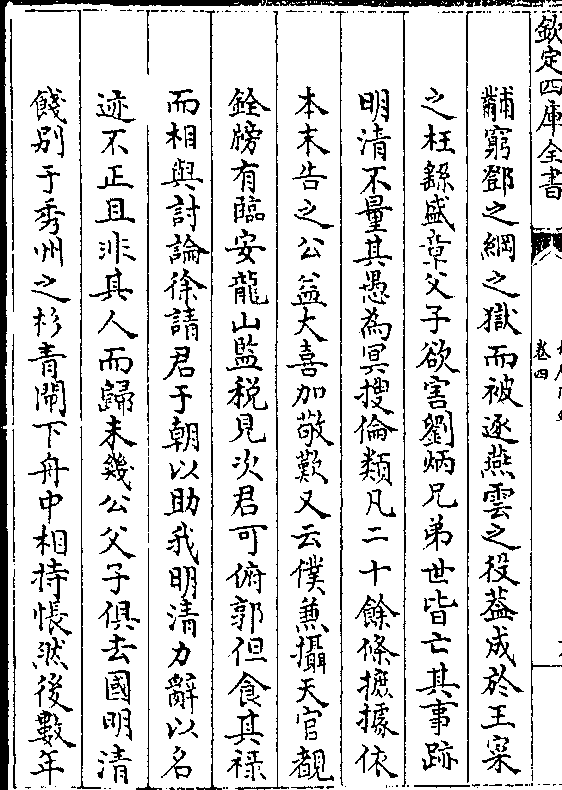 欽定四庫全書
卷四
黼窮鄧之綱之獄而被逐燕雲之役葢成於王寀
之枉繇盛章父子欲害劉炳兄弟世皆亡其事跡
明清不量其愚為㝠搜倫類凡二十餘條摭據依
本末告之公益大喜加敬歎又云僕兼攝天官覩
銓牓有臨安龍山監税見次君可俯郭但食其禄
而相與討論徐請君于朝以助我明清力辭以名
迹不正且非其人而歸未幾公父子俱去國明清
餞别于秀州之杉青閘下舟中相持悵然後數年